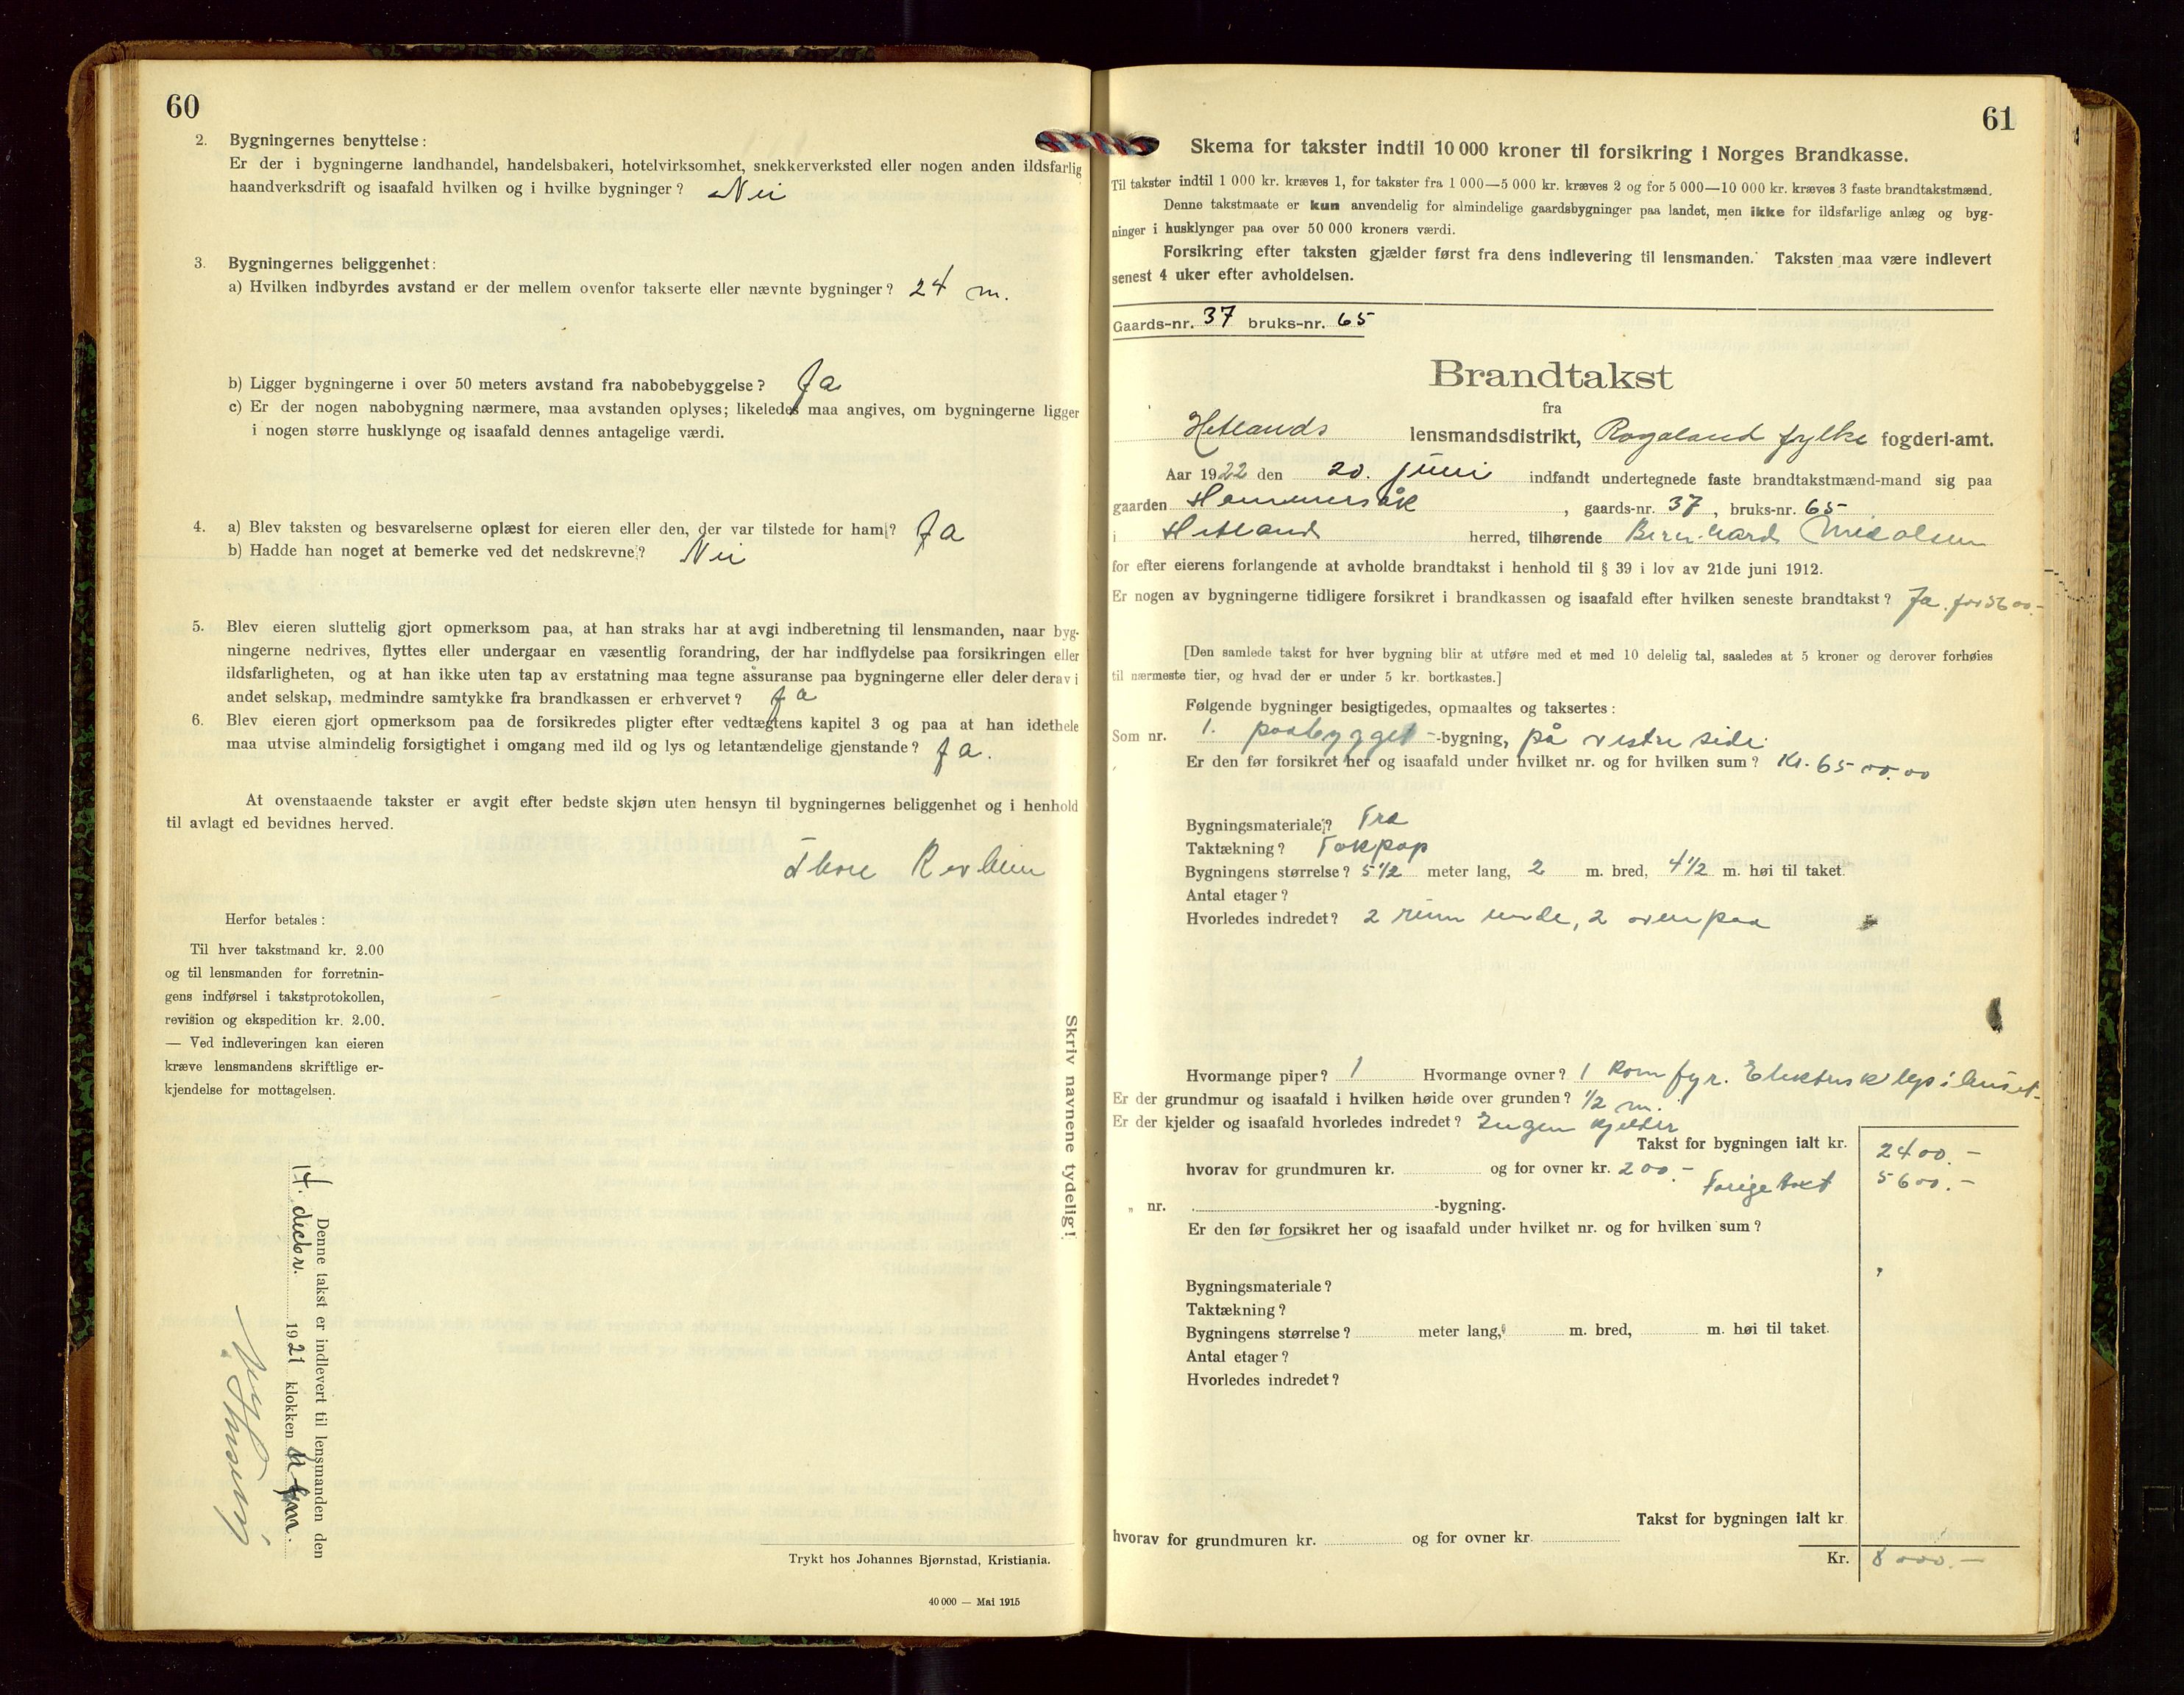 60
2. Bygningernes benyttelse:
Er der i bygningerne landhandel, handelsbakeri, hotelvirksomhet, snekkerverksted eller nogen anden ildsfarlig
haandverksdrift og isaafald hvilken og i hvilke bygninger? Nei
3. Bygningernes beliggenhet:
a) Hvilken indbyrdes avstand er der mellem ovenfor takserte eller nævnte bygninger? 24 m.
b) Ligger bygningerne i over 50 meters avstand fra nabobebyggelse? Ja
c) Er der nogen nabobygning nærmere, maa avstanden oplyses; likeledes maa angives, om bygningerne ligger
i nogen større husklynge og isaafald dennes antagelige værdi.
4. a) Blev taksten og besvarelserne oplæst for eieren eller den, der var tilstede for ham? Ja
b) Hadde han noget at bemerke ved det nedskrevne? Nei
5. Blev eieren sluttelig gjort opmerksom paa, at han straks har at avgi indberetning til lensmanden, naar byg-
ningerne nedrives, flyttes eller undergaar en væsentlig forandring, der har indflydelse paa forsikringen eller
ildsfarligheten, og at han ikke uten tap av erstatning maa tegne assuranse paa bygningerne eller deler derav i
andet selskap, medmindre samtykke fra brandkassen er erhvervet? Ja
6. Blev eieren gjort opmerksom paa de forsikredes pligter efter vedtægtens kapitel 3 og paa at han idethele
maa utvise almindelig forsigtighet i omgang med ild og lys og letantændelige gjenstande? Ja.
At ovenstaaende takster er avgit efter bedste skjøn uten hensyn til bygningernes beliggenhet og i henhold
til avlagt ed bevidnes herved.
Thore Revheim
Herfor betales:
Til hver takstmand kr. 2.00
og til lensmanden for forretnin-
gens indførsel i takstprotokollen,
revision og ekspedition kr. 2.00.
— Ved indleveringen kan eieren
kræve lensmandens skriftlige er-
kjendelse for mottagelsen.
Skriv navnene tydelig!
Denne takst er indlevert til lensmanden den
14. decbr. 1921 klokken
Trykt hos Johannes Bjørnstad, Kristiania.
40 000 — Mai 1915
61
Skema for takster indtil 10 000 kroner til forsikring i Norges Brandkasse.
Til takster indtil 1 000 kr. kræves 1, for takster fra 1 000—5 000 kr. kræves 2 og for 5 000—10 000 kr. kræves 3 faste brandtakstmænd.
Denne takstmaate er kun anvendelig for almindelige gaardsbygninger paa landet, men ikke for ildsfarlige anlæg og byg-
ninger i husklynger paa over 50 000 kroners værdi.
Forsikring efter taksten gjælder først fra dens indlevering til lensmanden. Taksten maa være indlevert
senest 4 uker efter avholdelsen.
Gaards-nr. 37 bruks-nr. 65
Brandtakst
fra
Hetlands lensmandsdistrikt, Rogaland fylke fogderi-amt.
Aar 1922 den 20. juni indfandt undertegnede faste brandtakstmænd-mand sig paa
gaarden Hammersåk, gaards-nr. 37, bruks-nr. 65
i Hetland herred, tilhørende Bernhard Mikalsen
for efter eierens forlangende at avholde brandtakst i henhold til § 39 i lov av 21de juni 1912.
Er nogen av bygningerne tidligere forsikret i brandkassen og isaafald efter hvilken seneste brandtakst? Ja. for 5600.-
[Den samlede takst for hver bygning blir at utføre med et med 10 delelig tal, saaledes at 5 kroner og derover forhøies
til nærmeste tier, og hvad der er under 5 kr. bortkastes.]
Følgende bygninger besigtigedes, opmaaltes og taksertes:
Som nr. 1. paabygget -bygning, på vestre side.
Er den før forsikret her og isaafald under hvilket nr. og for hvilken sum? Kr. 6500.00
Bygningsmateriale? Træ
Taktækning? Takpap
Bygningens størrelse? 5 1/2 meter lang, 2 m. bred, 4 1/2 m. høi til taket.
Antal etager?
Hvorledes indredet? 2 rum unde, 2 ovenpaa
Hvormange piper? 1 Hvormange ovner? 1 komfyr. Elektrisk lys i huset.
Er der grundmur og isaafald i hvilken høide over grunden? 1/2 m.
Er der kjelder og isaafald hvorledes indredet? Ingen kjelder
Takst for bygningen ialt kr. 2400.-
hvorav for grundmuren kr. og for ovner kr. 200.-
Forige takst 5600.-
„ nr. -bygning.
Er den før forsikret her og isaafald under hvilket nr. og for hvilken sum?
Bygningsmateriale?
Taktækning?
Bygningens størrelse? meter lang, m. bred, m. høi til taket.
Antal etager?
Hvorledes indredet?
Takst for bygningen ialt kr
hvorav for grundmuren kr. og for ovner kr.
Kr. 8000.-